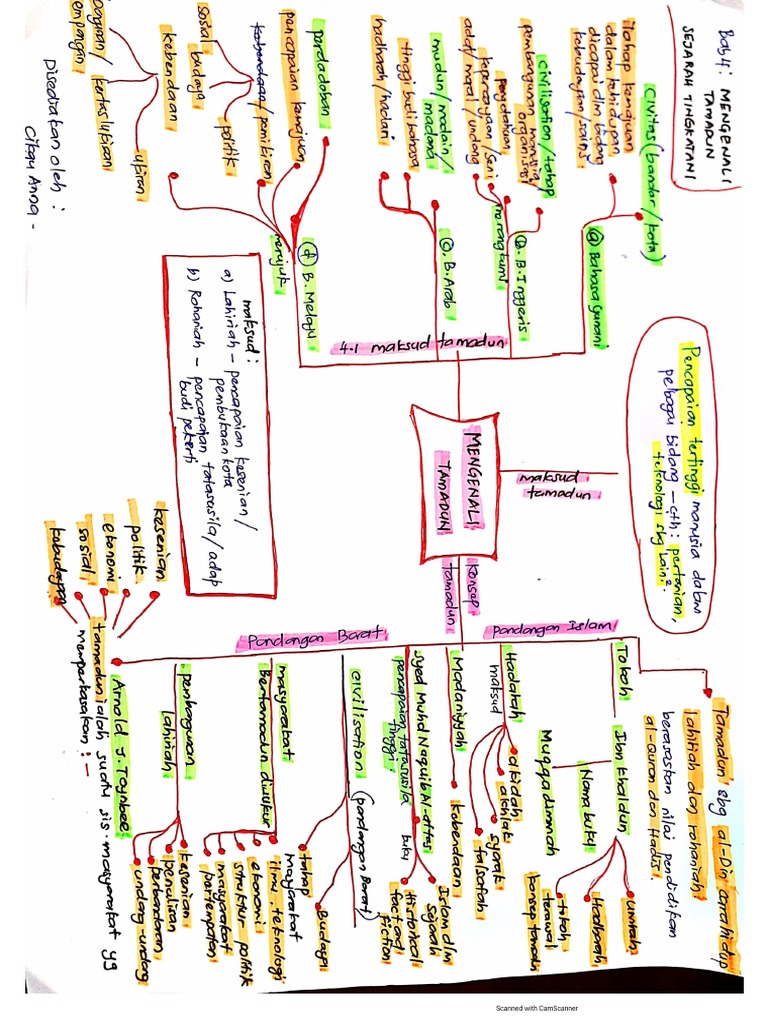 Bab 4: MENGENALI
TAMADUN
SEJARAH TINGKATAN 1
Pencapaian tertinggi manusia dalam
pelbagai bidang – cth: pertanian,
teknologi sbg lain².
maksud
tamadun
MENGENALI
TAMADUN
4.1 maksud tamadun
@ Bahasa Yunani
Civitas (bandar / kota)
Tahap kemajuan
dalam kehidupan
dicapai dlm bidang
kebudayaan/sains
b. B. Inggeris
merangkumi
civilisation / tahap
pembangunan manusia
organisasi
Pengetahuan
kepercayaan/seni
adat/moral/undang
c. B. Arab
mudun/madain/
madana
tinggi budi bahasa
hadharah/hadari
d B. Melayu
merujuk
peradaban
pencapaian kemajuan
kebendaan/pemikiran
sosial
budaya
politik
kebendaan
kertas lukisan
ukiran
maksud:
a) Lahiriah – pencapaian kesenian /
pembukaan kota
b) Rohaniah – pencapaian tatasusila / adab
budi pekerti
Disediakan oleh:
Cikgu Anna -
konsep
tamadun
Pandangan Islam
Tamadun sbg al-Din / cara hidup
lahiriah dan rohaniah.
berasaskan nilai pendidikan
al-Quran dan Hadis.
Tokoh
Ibn Khaldun
Nama buku
Muqaddimah
umran
Hadharah
tokoh
terawal
konsep tamadun
Hadarah
maksud
akidah
akhlak
syarak
falsafah
Madaniyyah
kebendaan
Syed Muhd Naquib Al-attas
pencapaian tatasusila
tinggi.
buku
Islam dlm
Sejarah
Historical
fact and
fiction
Pandangan Barat
civilisation
(pandangan Barat)
Budaya
tahap
masyarakat
masyarakat
Bertamadun diukur
ilmu, teknologi
ekonomi
struktur politik
masyarakat
pertempatan
pembangunan
lahiriah
kesenian
penulisan
perbandaran
undang-undang
Arnold J. Toynbee:
tamadun ialah suatu sis. masyarakat yg
memperkasakan :-
kesenian
politik
ekonomi
sosial
kebudayaan
Scanned with CamScanner